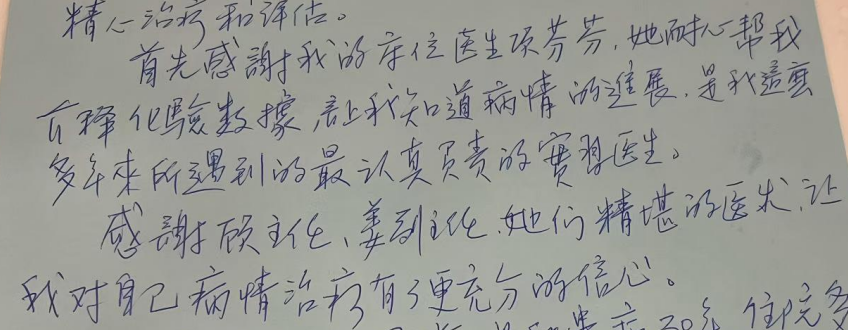 精心治疗和评估。
首先感謝我的床位医生项芬芬，她耐心帮我
解释化驗数據，让我知道病情的進展，是我這麼
多年來所遇到的最认真负责的實習医生。
感謝顾主任、姜副主任，她们精堪的医术，让
我对自己病情治疗有了更充分的信心。
住院多